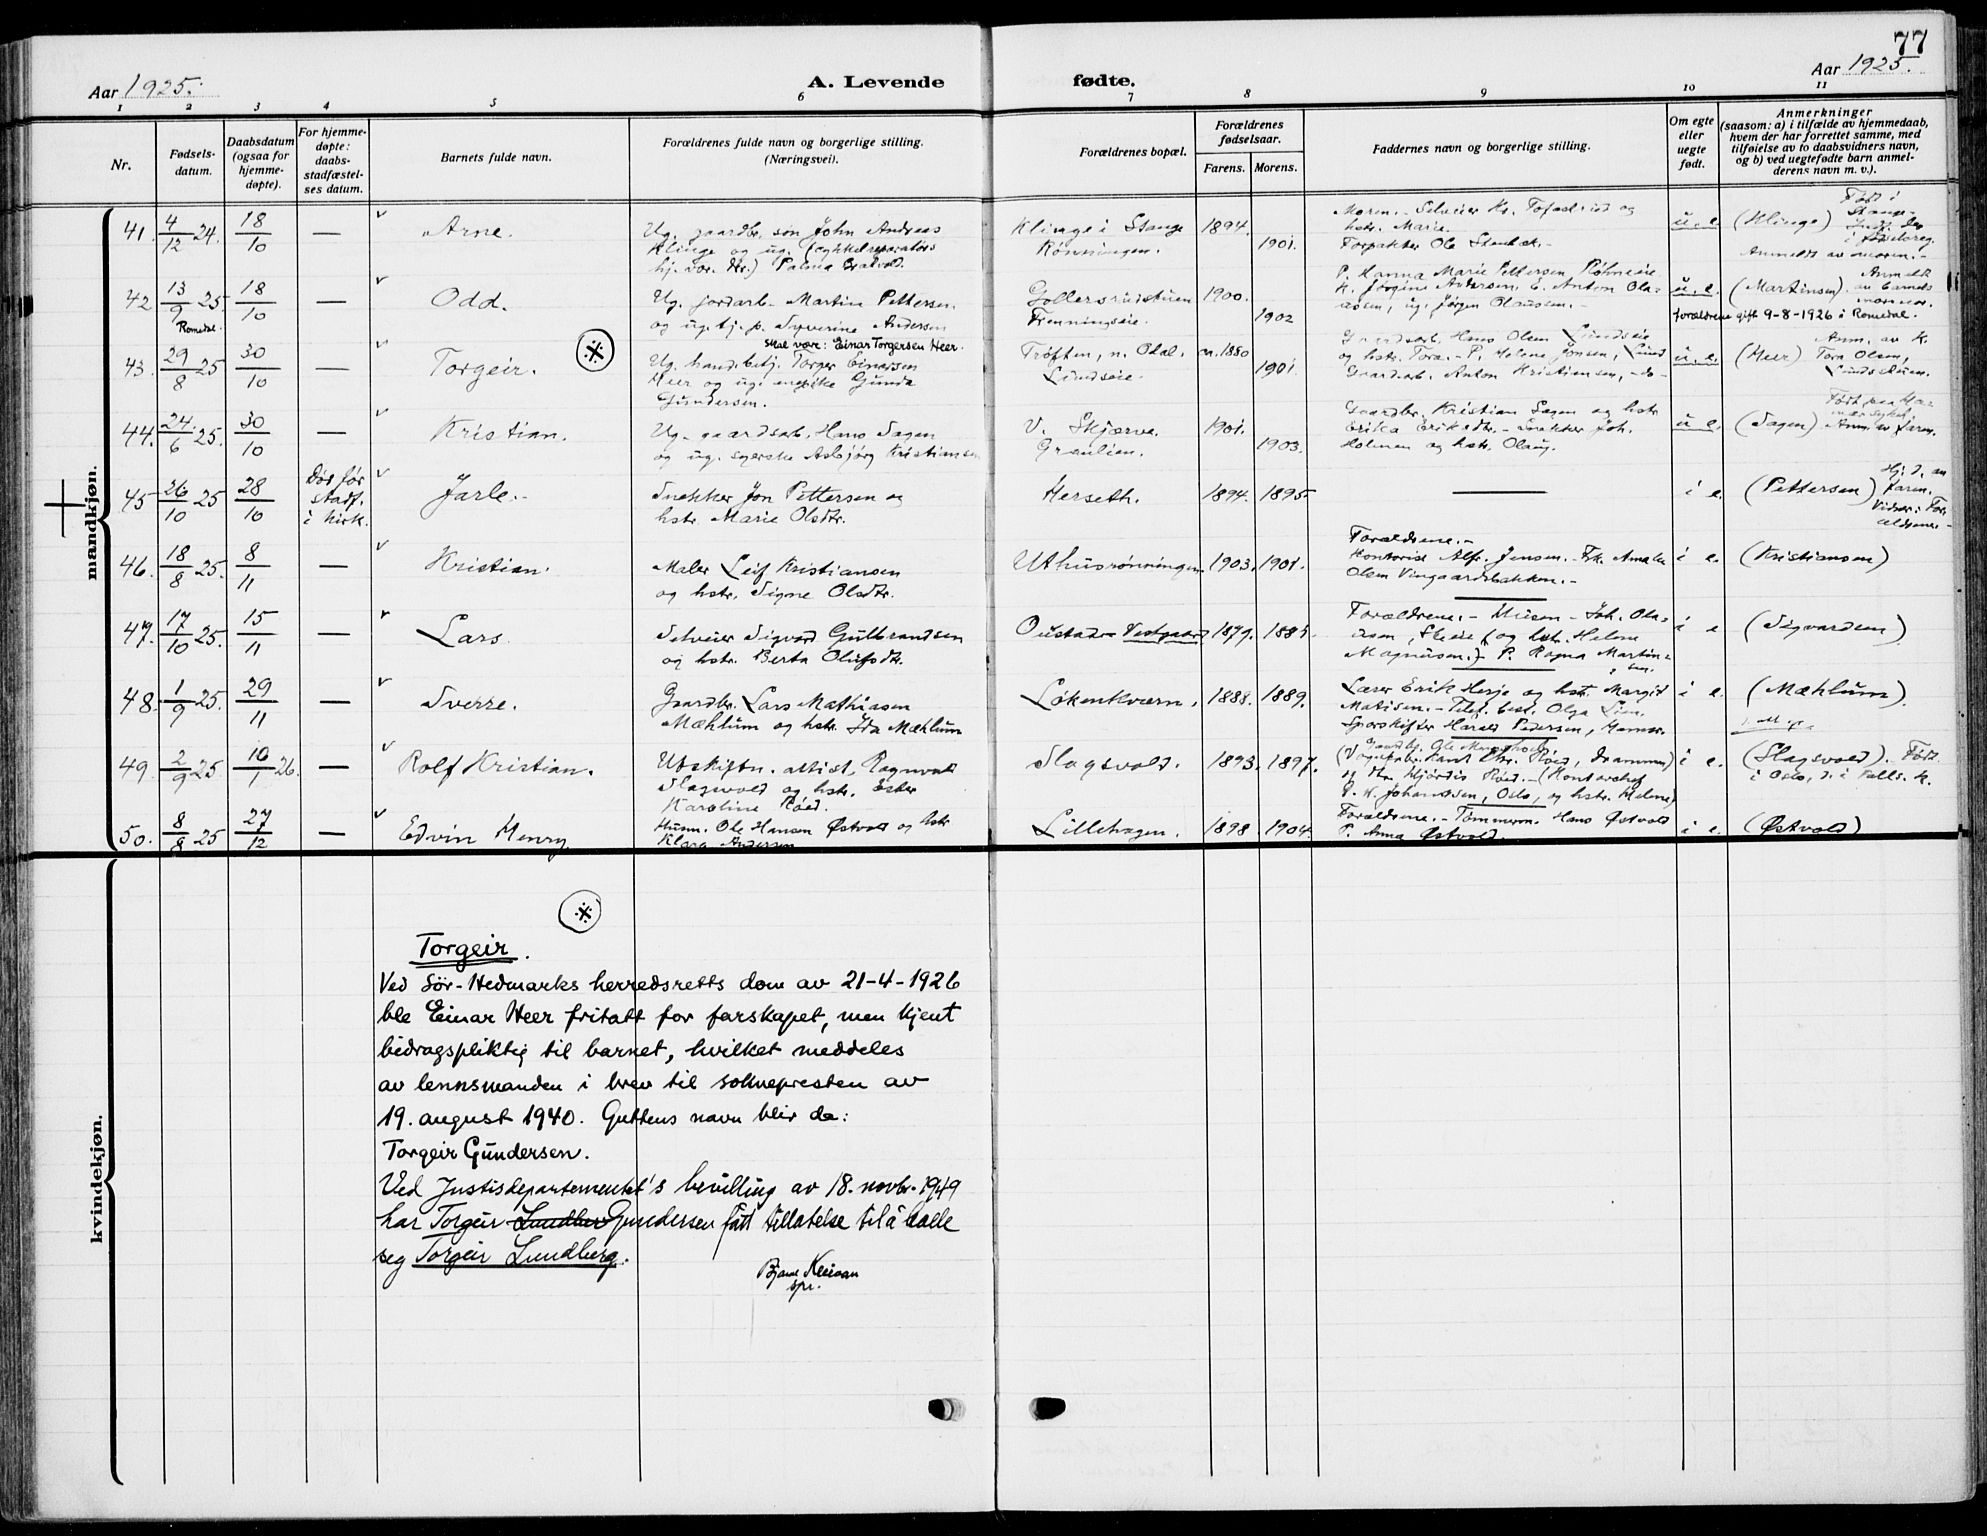 77
Aar 1925.
A. Levende fødte.
Aar 1925.
1 2 3 4 5 6 7 8 9 10 11
Nr.
Fødsels-
datum.
Daabsdatum
(ogsaa for
hjemme-
døpte).
For hjemme-
døpte:
daabs-
stadfæstel-
ses datum.
Barnets fulde navn.
Forældrenes fulde navn og borgerlige stilling.
(Næringsvei).
Forældrenes bopæl.
Forældrenes
fødselsaar.
Farens. Morens.
Faddernes navn og borgerlige stilling.
Om egte
eller
uegte
født.
Anmerkninger
(saasom: a) i tilfælde av hjemmedaab,
hvem der har forrettet samme, med
tilføielse av to daabsvidners navn,
og b) ved uegtefødte barn anmel-
derens navn m. v.).
mandkjøn.
41. 4/12 24. 18/10 — Arne.
Ug. gaardbr. søn John Andreas
Klinge og ug. (cykkelreparatørs
hj. vær. dtr.) Palma
Klinge i Stange
Rønningen.
1894. 1901.
Moren. - Selveier Kr. og
hstr. Marie.
Forpakter Ole
u. e. (Klinge)
Født i
Stange.
Anmeldt av moren. -
42 13/9 25 Romedal 18/10 — Odd.
Ug. jordarb. Martin Pettersen
og ug. tj. p. Syverine Andersen
Gollersrudstuen
1900. 1902
P. Hanna Marie Pettersen,
K. Jørgine Andersen. E. Anton Ola-
ussen, ug. Jørgen Olaussen. -
u. e. (Martinsen)
Anmeldt
av barnets
mormor.
forældrene gift 9-8-1926 i Romedal.
43. 29/8 25 30/10 — Torgeir.
Skal være: Einar Torgersen Heer.
Ug. handelsbetj. Torger Einarsen
Heer og ug. Gunda
Gundersen.
Trøften, n. Odal.
Lundseie.
ca. 1880 1901.
Gaardsarb. Hans Olsen Lundseie
og hstr. Tora. - P. Helene Jonsen, Lund
Gaardsarb. Anton Kristiansen, -do-
u. e. (Heer)
Anm. av K.
Tora Olsen,
Lundstuen.
44. 24/6 25. 30/10 — Kristian.
Ug. gaardsarb. Hans Sagen
og ug. syerske Asbjørg Kristiansen
V. Skjærve.
Graulien.
1901. 1903.
Gaardbr. Kristian Sagen og hstr
Erika Eriksdtr. - Snekker Joh.
Holmen og hstr. Olaug.
u. e. (Sagen)
Anm. av faren.
45 26/10 25 28/10
Død før
stadf.
i kirk.
Jarle. -
Snekker Jon Pettersen og
hstr. Marie Olsdtr.
Herseth. 1894. 1895.
——
i e. (Pettersen)
Hj. d. av
faren.
Vidner: For-
ældrene. -
46. 18/8 25. 8/11 — Kristian.
Maler Leif Kristiansen
og hstr. Signe Olsdtr.
Uthusrønningen. 1903. 1901.
Forældrene. -
Kontorist Alf. Jensen. - Frk. Amalie
Olsen Vingaardsbakken. -
i e. (Kristiansen)
47. 17/10 25. 15/11 — Lars.
Selveier Sigvard Gulbrandsen
og hstr. Berta Olufsdtr.
Oustad - Vestgaard 1879. 1889.
Forældrene. - - Joh. Ola-
ussen, og hstr. Helene
Magnusen.) - P. Ragna Martin-
sen.
i e (Sigvardsen)
48. 1/9 25. 29/11 — Sverre.
Gaardbr. Lars Mathiasen
Mæhlum og hstr. Ida Mæhlum
Løkenkværn. 1888. 1889.
Lærer Erik Hesje og hstr. Margit
Matisen. - Telef. best. Olga Lien.
Sporskifter Harald Pedersen, Hamar.
i e. (Mæhlum)
49. 2/9 25. 10/1 26. — Rolf Kristian.
Utskiftn. assist. Ragnvald
Slagsvold og hstr. Ester
Karoline Røed.
Slagsvold. 1893. 1897.
Røed, Drammen)
og Hjørdis Røed. - (Kontorchef
Johansen, Oslo, og hstr. Helene)
i e. (Slagsvold). Født
i Oslo, d. i Fells. K.
50. 8/8 25 27/12 — Edvin Henry
Husm. Ole Hansen Østvold og hstr
Klara Andersen
Lillehagen. 1898. 1904
Forældrene. - Tømmerm. Hans Østvold
P. Anna Østvold.
i e. (Østvold)
kvindekjøn.
Torgeir.
Ved Sør-Hedmarks herredsretts dom av 21-4-1926
ble Einar Heer fritatt for farskapet, men kjent
bidragspliktig til barnet, hvilket meddeles
av lennsmanden i brev til soknepresten av
19. august 1940. Guttens navn blir da:
Torgeir Gundersen.
Ved Justisdepartementet's bevilling av 18. novbr. 1949
har Torgeir Lundber Gundersen fått tillatelse til å kalle
seg Torgeir Lundberg.
Bjarne
spr.